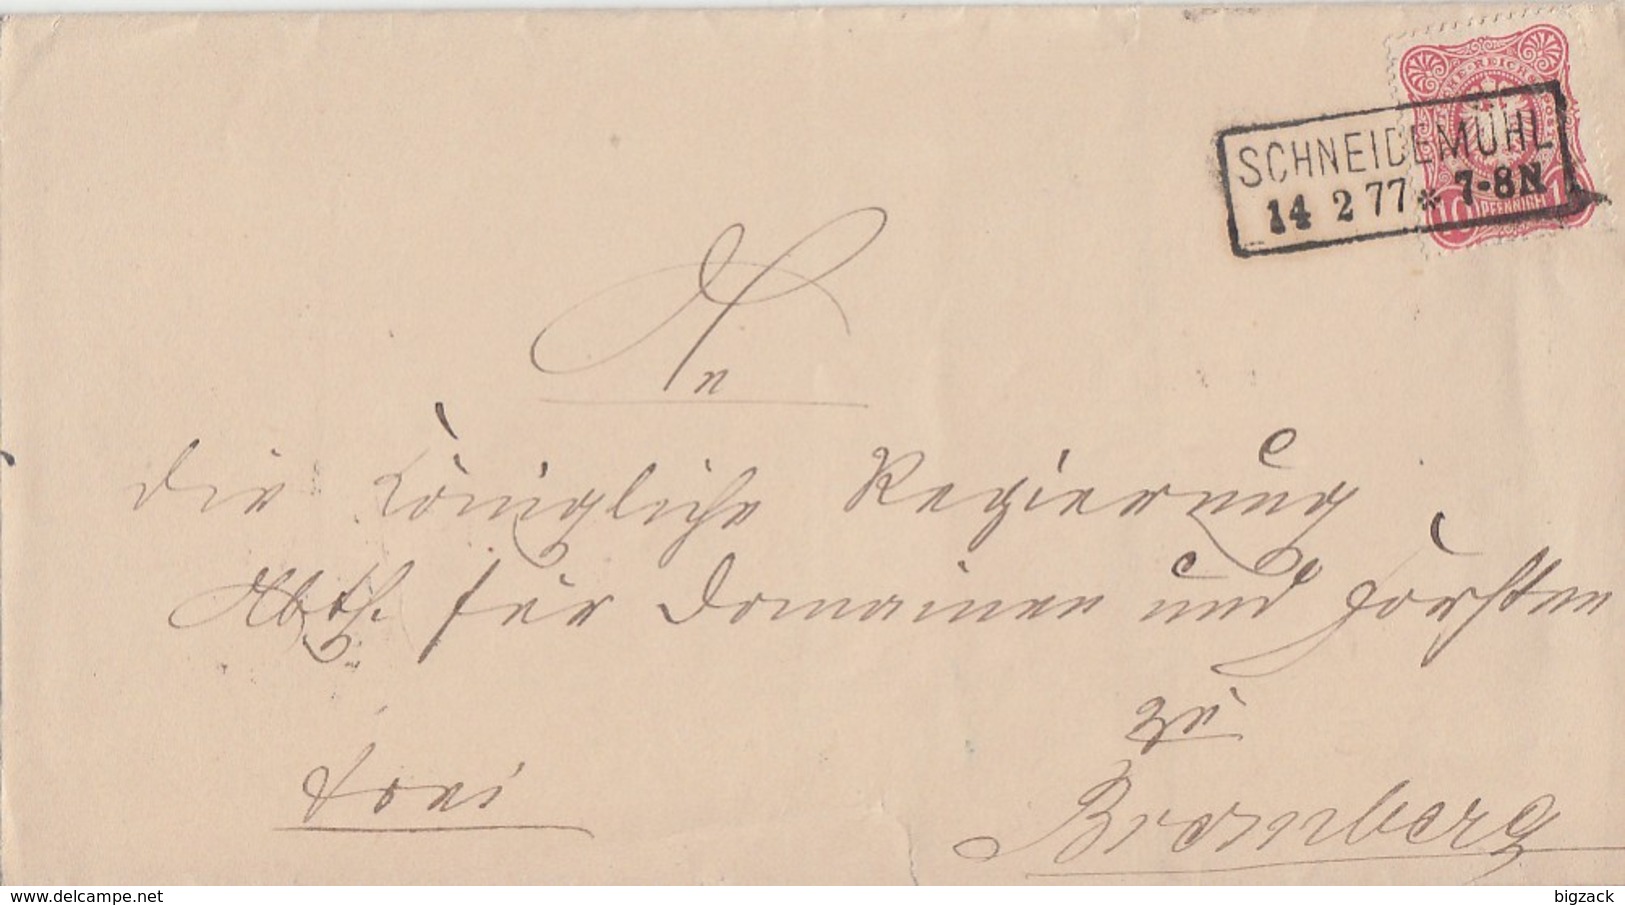 DEUTSCHE REICHS-POST
SCHNEIDEMÜHL
14 2 77 * 7-8N
10 PFENNIGE 1
An
die Königliche Regierung
Abth. für Domainen und Forsten
zu
frei
Bromberg
delcampe.net
bigzack